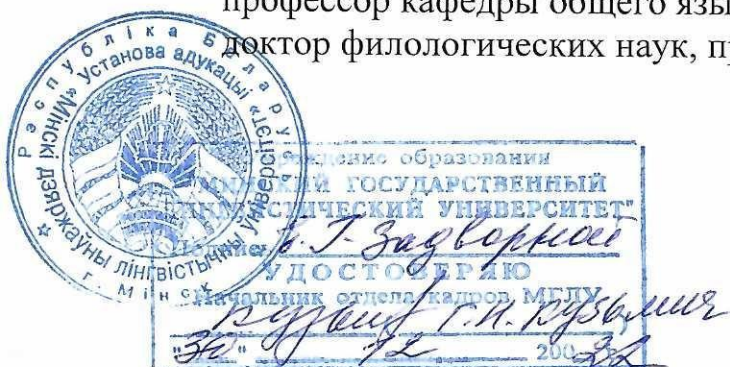 профессор кафедры общего язы
доктор филологических наук, пр
Рэспубліка Беларусь
Установа адукацыі
«Мінскі дзяржаўны лінгвістычны ўніверсітэт»
г. Мінск
Учреждение образования
"МИНСКИЙ ГОСУДАРСТВЕННЫЙ
ЛИНГВИСТИЧЕСКИЙ УНИВЕРСИТЕТ"
Подпись Е.Г. Задворной
УДОСТОВЕРЯЮ
Начальник отдела кадров МГЛУ
Г.Н. Кузьмич
"30" 12 200